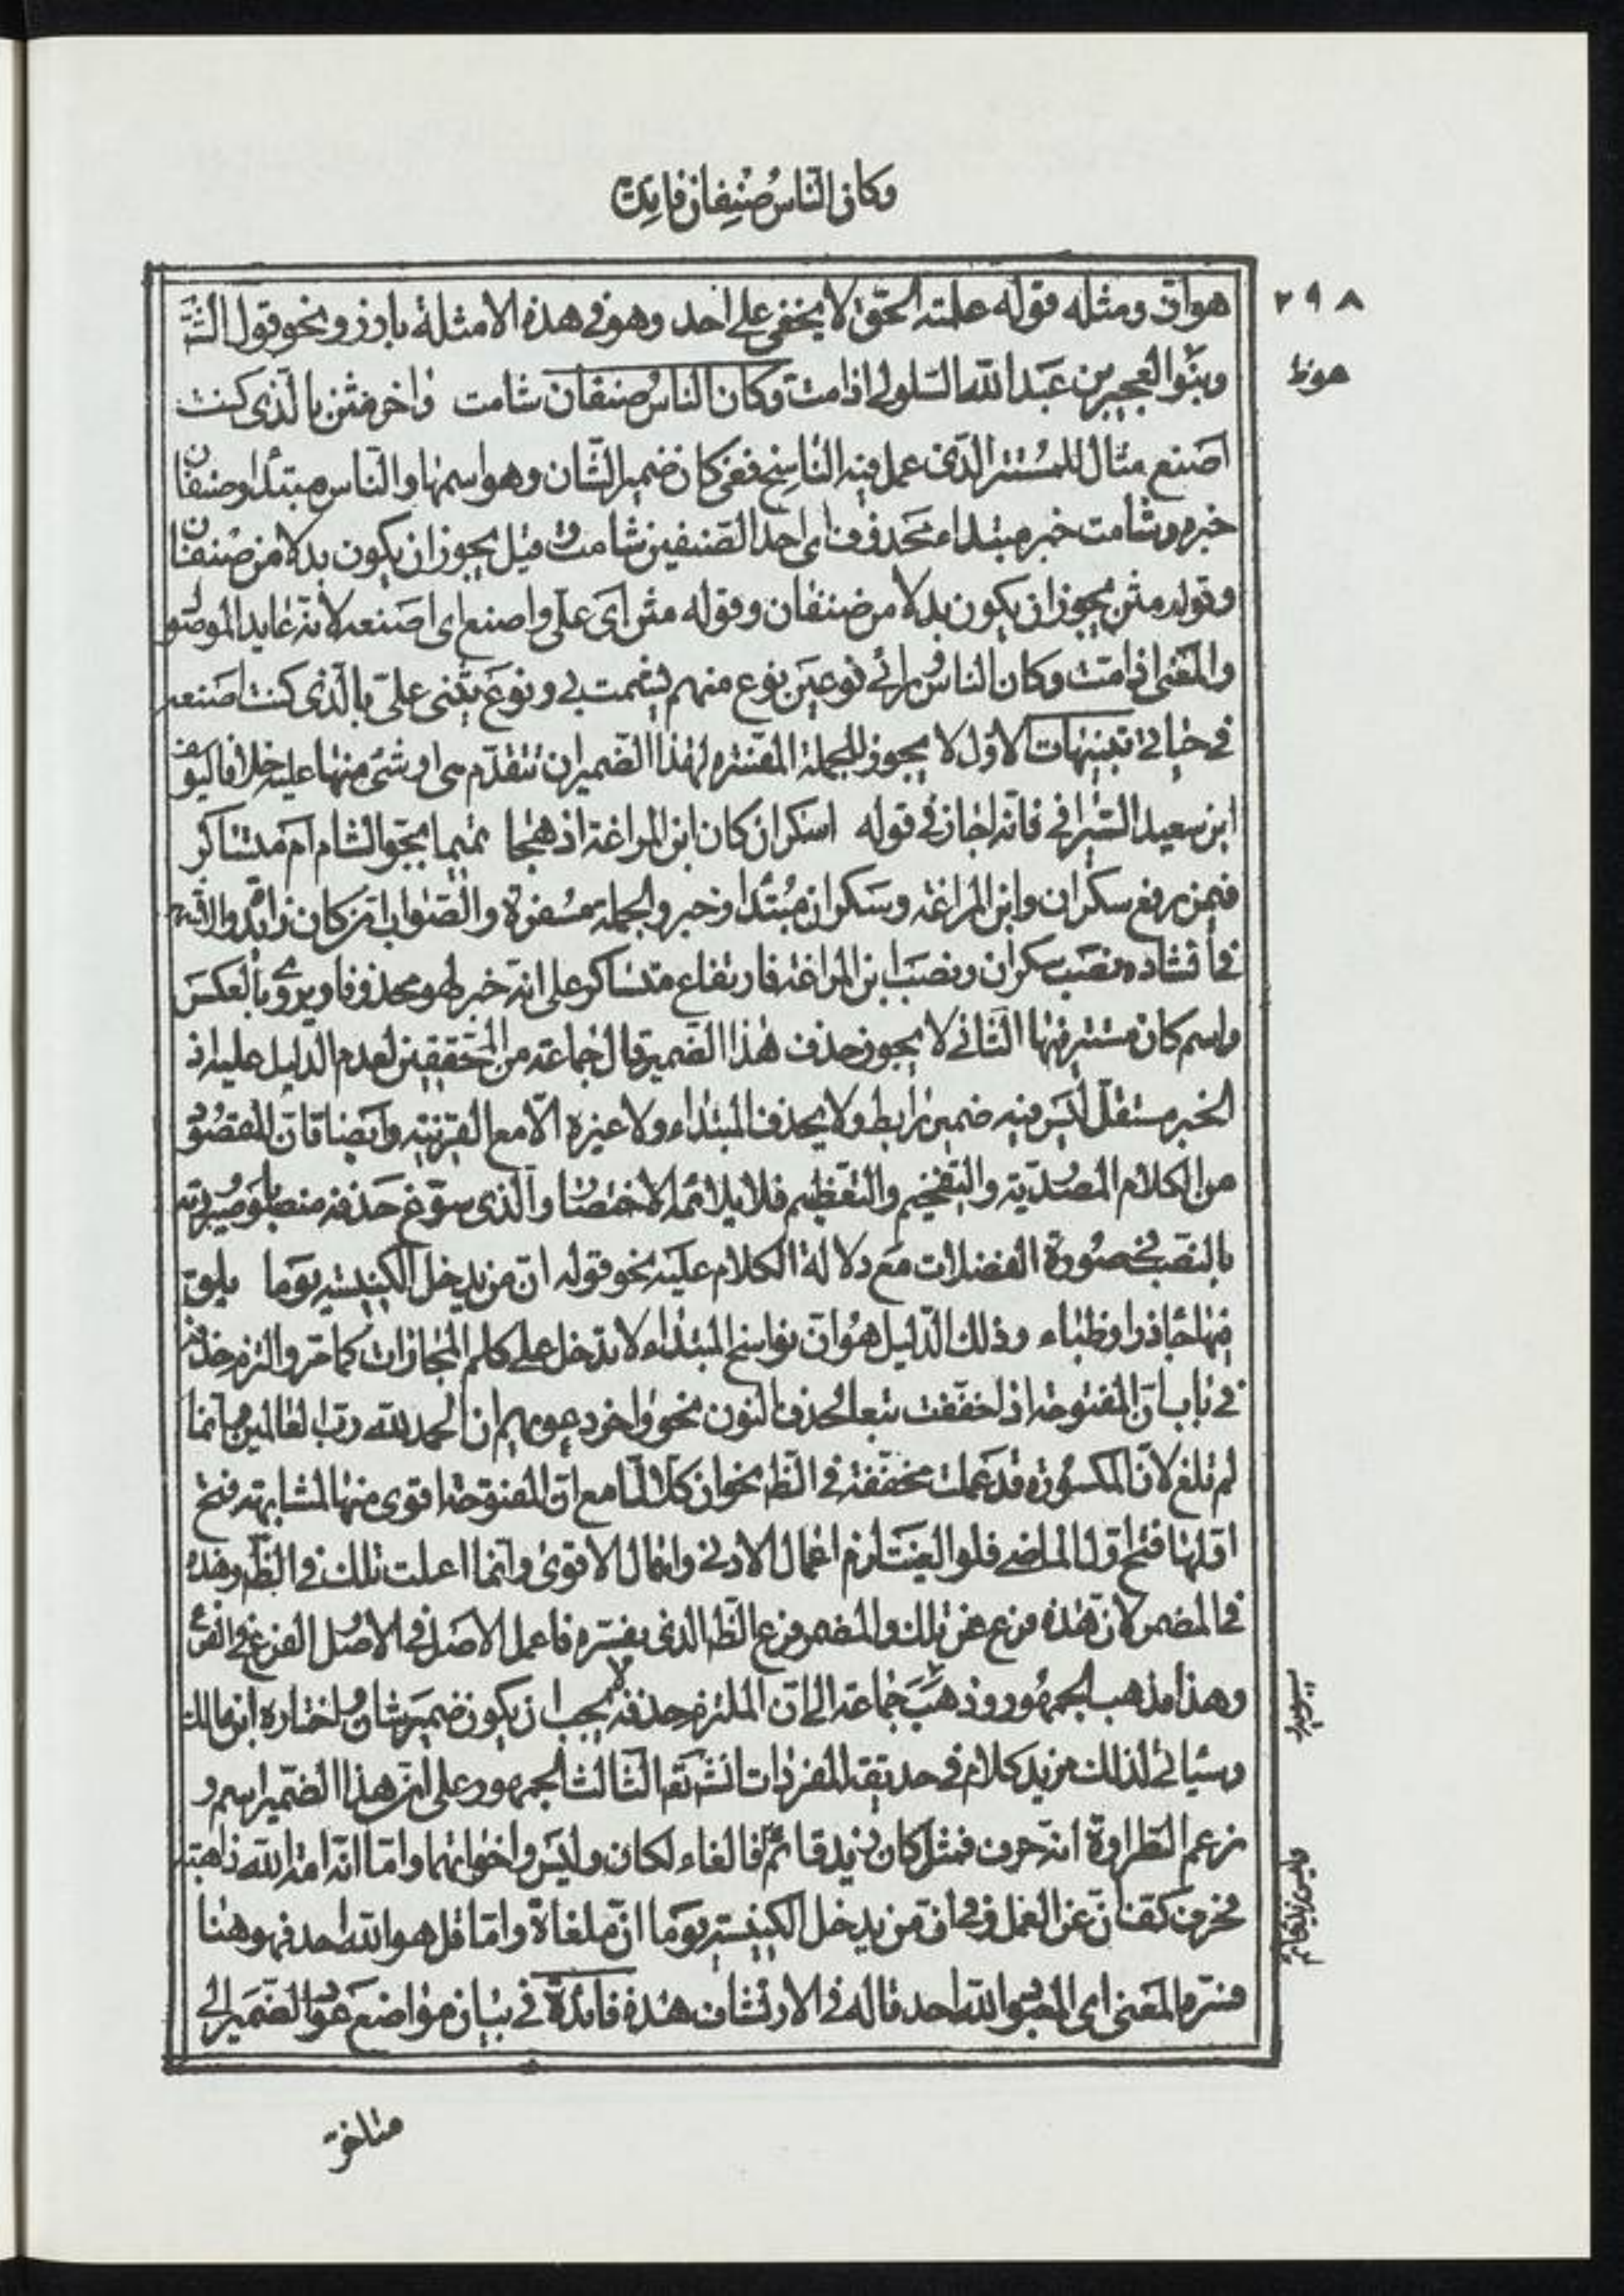 وكان الناس صنفان فايدة
٢٩٨
هواق ومثله قوله علمته الحق لا يخفى على احد وهو في هذه الامثلة بارز ونحو قول الشا
هوظ
وبنو العجير بن عبد الله السلولي اذا مت وكان الناس صنفان شامت واخر مثن بالذي كنت
اصنع مثال للمستتر الذي عمل فيه الناسخ ففي كان ضمير الشان وهو اسمها والناس مبتدأ وصنفان
خبره وشامت خبر مبتداء محذوف اى احد الصنفين شامت وقيل يجوز ان يكون بدلا من صنفان
وقوله مثن يجوز ان يكون بدلا من صنفان وقوله مثن اى على واصنع اى اصنعه لانه عايد الموصو
والمعنى اذا مت وكان الناس نوعين نوع منهم يشمت بي ونوع يثنى على بالذي كنت اصنعه
في حياتي تنبيهات الاول لا يجوز للجملة المفسره لهذا الضمير ان تتقدم هى او شئ منها عليه خلافا ليوسف
ابن سعيد السيرافي فانه اجاز في قوله اسكران كان ابن المراغة اذ هجا تميما بجو الشام ام متساكر
فيمن رفع سكران وابن المراغة وسكران مبتدأ وخبر والجملة مفسرة والصواب ان كان زائدة والاشهر
في انشاده نصب سكران ونصب ابن المراغة فارتفاع متساكر على انه خبر لهو محذوفا ويروى بالعكس
واسم كان مستتر فيها الثاني لا يجوز حذف هذا الضمير قال جماعة من المحققين لعدم الدليل عليه اذ
الخبر مستقل ليس فيه ضمير رابط ولا يحذف المبتداء ولا غيره الا مع القرينة وايضا فان المقصود
من الكلام المصدر به والتفخيم والتعظيم فلا يلائمه الاختصار والذي سوغ حذفه منصوبا صيرورته
بالنصب في صورة الفضلات مع دلالة الكلام عليه نحو قوله ان من يدخل الكنيسة يوما يلق
فيها جاذرا وظباء وذلك الدليل هو ان نواسخ المبتداء لا تدخل على كلم المجازات كما مر والتزم حذفه
في باب ان المفتوحة اذا خففت تبعا لحذف النون نحو واخر دعويهم ان الحمد لله رب العالمين وانما
لم تلغ لان المكسورة قد عملت مخففة في الظ نحو ان كلا لما مع ان المفتوحة اقوى منها لمشابهته فتح
اولها فتح اول الماضي فلو الغيت لزم اعمال الادنى واهمال الاقوى وانما اعملت تلك في الظ وهذه
في المضمر لان هذه فرع عن تلك والمضمر فرع الظ الذي يفسره فاعمل الاصل في الاصل والفرع في الفرع
وهذا مذهب الجمهور وذهب جماعة الى ان الملتزم حذفه لا يجب ان يكون ضمير شان واختاره ابن مالك
سيبويه
وسياتي لذلك مزيد كلام في حديقة المفردات انشاء الله تعالى الثالث الجمهور على ان هذا الضمير اسم و
زعم الطراوة انه حرف فمثل كان زيد قائم فالغاء لكان وليس واخواتهما واما انه امة الله ذاهبة
وليس زيد قائم
فحرف كف ان عن العمل وفي ان من يدخل الكنيسة يوما ان ملغاة واما قل هو الله احد فهو هنا
فسره المعنى اى المعبود الله احد قاله في الارتشاف هذه فائدة في بيان مواضع عود الضمير الى
متاخر